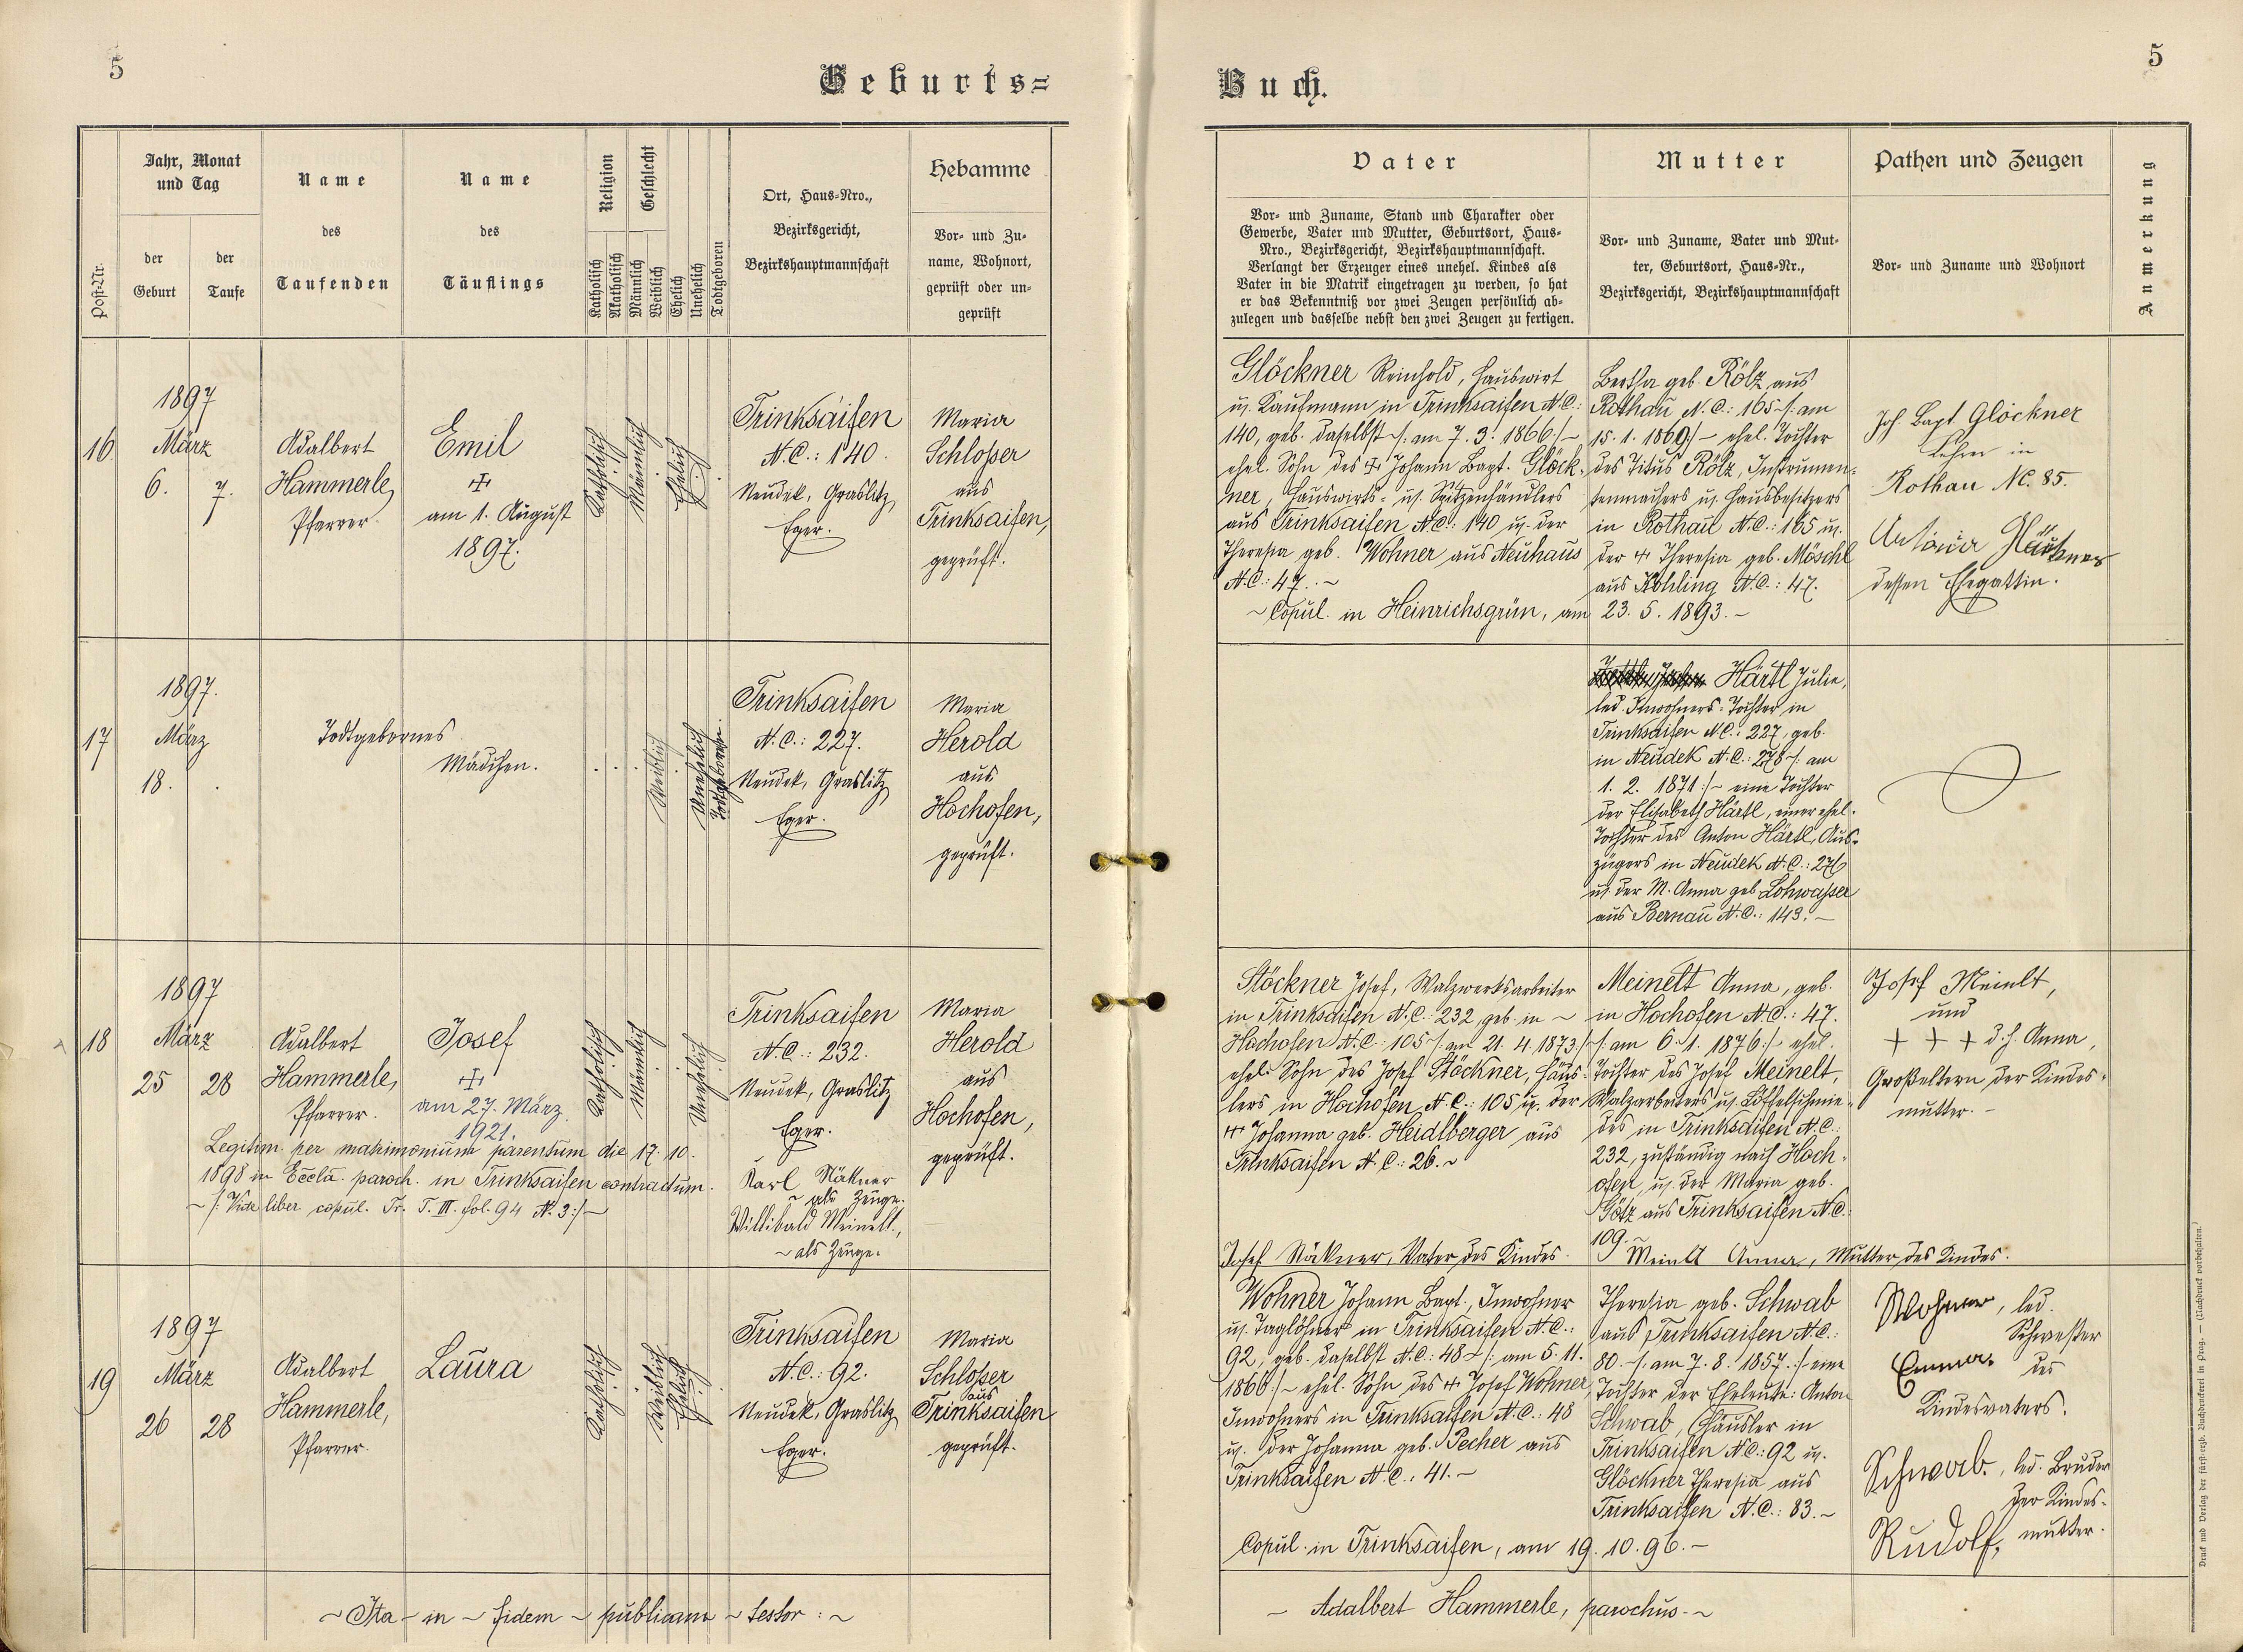 5
Geburts=
Buch.
5
Post-Nr.
Jahr, Monat
und Tag
der
Geburt
der
Taufe
Name
des
Taufenden
Name
des
Täuflings
Religion
Katholisch
Akatholisch
Geschlecht
Männlich
Weiblich
Ehelich
Unehelich
Todtgeboren
Ort, Haus-Nro.,
Bezirksgericht,
Bezirkshauptmannschaft
Hebamme
Vor- und Zu-
name, Wohnort,
geprüft oder un-
geprüft
Vater
Vor- und Zuname, Stand und Charakter oder
Gewerbe, Vater und Mutter, Geburtsort, Haus-
Nro., Bezirksgericht, Bezirkshauptmannschaft.
Verlangt der Erzeuger eines unehel. Kindes als
Vater in die Matrik eingetragen zu werden, so hat
er das Bekenntniß vor zwei Zeugen persönlich ab-
zulegen und dasselbe nebst den zwei Zeugen zu fertigen.
Mutter
Vor- und Zuname, Vater und Mut-
ter, Geburtsort, Haus-Nr.,
Bezirksgericht, Bezirkshauptmannschaft
Pathen und Zeugen
Vor- und Zuname und Wohnort
Anmerkung
16
1897
März
6. 7.
Adalbert
Hammerle,
Pfarrer.
Emil
✠
am 1. August
1897.
Katholisch
Männlich
Ehelich
Trinksaifen
N.C.: 140.
Neudek, Graslitz,
Eger.
Maria
Schlosser
aus
Trinksaifen,
geprüft.
Glöckner Reinhold, Hauswirt
u. Kaufmann in Trinksaifen N.C.:
140, geb. daselbst /: am 7. 3. 1866 :/ –
ehel. Sohn des ✠ Johann Bapt. Glöck-
ner, Hauswirts- u. Spitzenhändlers
aus Trinksaifen N.C.: 140 u. der
Theresia geb. Wohner aus Neuhaus
N.C.: 47. –
Bertha geb. Rölz aus
Rothau N.C.: 165 /: am
15. 1. 1869 :/ – ehel. Tochter
des Titus Rölz, Instrumen-
tenmachers u. Hausbesitzers
in Rothau N.C.: 165 u.
der ✠ Theresia geb. Möschl
aus Kohling N.C.: 47.
~ Copul. in Heinrichsgrün, am 23. 5. 1893. –
Joh. Bapt. Glöckner
Lehrer in
Rothau NC. 85.
Antonia Glöckner
dessen Ehegattin.
17
1897.
März
18.
Todtgebornes
Mädchen.
Weiblich
Unehelich
Todtgeboren.
Trinksaifen
N.C.: 227.
Neudek, Graslitz,
Eger.
Maria
Herold
aus
Hochofen,
geprüft.
Härtl Julie,
led. Inwohners-Tochter in
Trinksaifen N.C.: 227, geb.
in Neudek N.C.: 278 /: am
1. 2. 1871 :/ – eine Tochter
der Elisabeth Härtl, einer ehel.
Tochter des Anton Härtl, Aus-
zügers in Neudek N.C.: 276
u. der M. Anna geb. Lohwasser
aus Bernau N.C.: 143. –
18
1897
März
25 28
Adalbert
Hammerle,
Pfarrer.
Josef
✠
am 27. März
1921.
Katholisch
Männlich
Unehelich
Trinksaifen
N.C.: 232.
Neudek, Graslitz
Eger.
Maria
Herold
aus
Hochofen,
geprüft.
Legitim. per matrimonium parentum die 17. 10.
1898 in Eccla. paroch. in Trinksaifen contractum.
~ /: Vide liber copul. Tr. T. III. fol. 94 N. 3 :/ ~
Karl Stöckner
~ als Zeuge.
Willibald Meinelt,
~ als Zeuge.
Stöckner Josef, Walzwerksarbeiter
in Trinksaifen N.C.: 232, geb. in ~
Hochofen N.C.: 105 /: am 21. 4. 1873 :/
ehel. Sohn des Josef Stöckner, Häus-
lers in Hochofen N.C.: 105 u. der
✠ Johanna geb. Heidlberger aus
Trinksaifen N.C.: 26. ~
Josef Stöckner, Vater des Kindes.
Meinelt Anna, geb.
in Hochofen N.C.: 47.
/: am 6. 1. 1876 :/ ehel.
Tochter des Josef Meinelt,
Walzarbeiters u. Löffelschmie-
des in Trinksaifen N.C.:
232, zuständig nach Hoch-
ofen, u. der Maria geb.
Götz aus Trinksaifen N.C.:
109. ~
Meinelt Anna, Mutter des Kindes.
Josef Meinelt,
und
+ + + d. h. Anna,
Großeltern der Kindes-
mutter. –
19
1897
März
26 28
Adalbert
Hammerle,
Pfarrer.
Laura
Katholisch
Weiblich
Ehelich
Trinksaifen
N.C.: 92.
Neudek, Graslitz,
Eger.
Maria
Schlosser
aus
Trinksaifen
geprüft.
Wohner Johann Bapt., Inwohner
u. Taglöhner in Trinksaifen N.C.:
92, geb. daselbst N.C.: 48 /: am 5. 11.
1866 :/ – ehel. Sohn des ✠ Josef Wohner,
Inwohners in Trinksaifen N.C.: 48
u. der Johanna geb. Pecher aus
Trinksaifen N.C.: 41. –
Theresia geb. Schwab
aus Trinksaifen N.C.:
80. /: am 7. 8. 1857. :/ eine
Tochter der Eheleute: Anton
Schwab, Häusler in
Trinksaifen N.C.: 92 u.
Glöckner Theresia aus
Trinksaifen N.C.: 83. –
Copul. in Trinksaifen, am 19. 10. 96. –
Wohner, led.
Schwester
Emma. des
Kindesvaters.
Schwab., led. Bruder
der Kindes-
Rudolf, mutter.
~ Ita – in ~ fidem ~ publicam ~ testor : ~
– Adalbert Hammerle, parochus. ~
Druck und Verlag der fürst-erzb. Buchdruckerei in Prag. — (Nachdruck vorbehalten.)